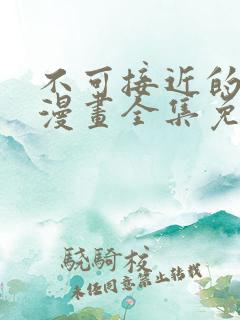 不可接近的
漫畫全集免
驍騎校
未经同意禁止转载